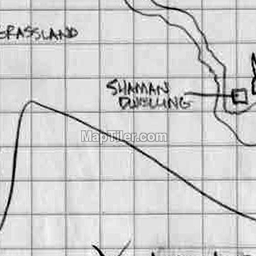 GRASSLAND
SHAMAN
DWELLING
MapTiler.com